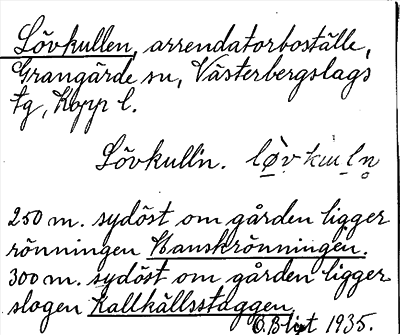 Lövkullen, arrendatorboställe,
Grangärde sn, Västerbergslags
tg, Kopp l.
Lövkulln. lø̀vkuḷn̥
250 m. sydöst om gården ligger
rönningen Hanskrönningen.
300 m. sydöst om gården ligger
slogen Kallkällsstaggen.
O.Blixt 1935.